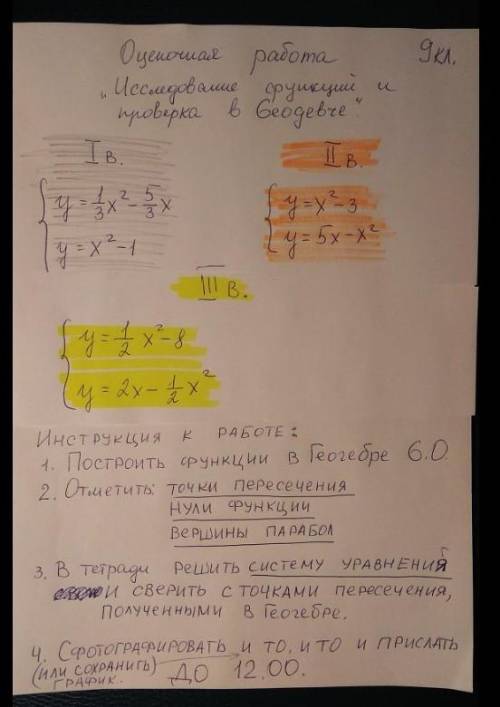 Оценочная работа 9кл.
„Исследование функций и
проверка в Геодевче"
I в.
II в.
y = 1/3 x² - 5/3 x
y = x² - 1
y = x² - 3
y = 5x - x²
III в.
y = 1/2 x² - 8
y = 2x - 1/2 x²
Инструкция к работе:
1. Построить функции в Геогебре 6.0.
2. Отметить: точки пересечения
нули функции
вершины парабол
3. В тетради решить систему уравнений
и сверить с точками пересечения,
полученными в Геогебре.
4. Сфотографировать и то, и то и прислать
(или сохранить) до 12.00.
график.